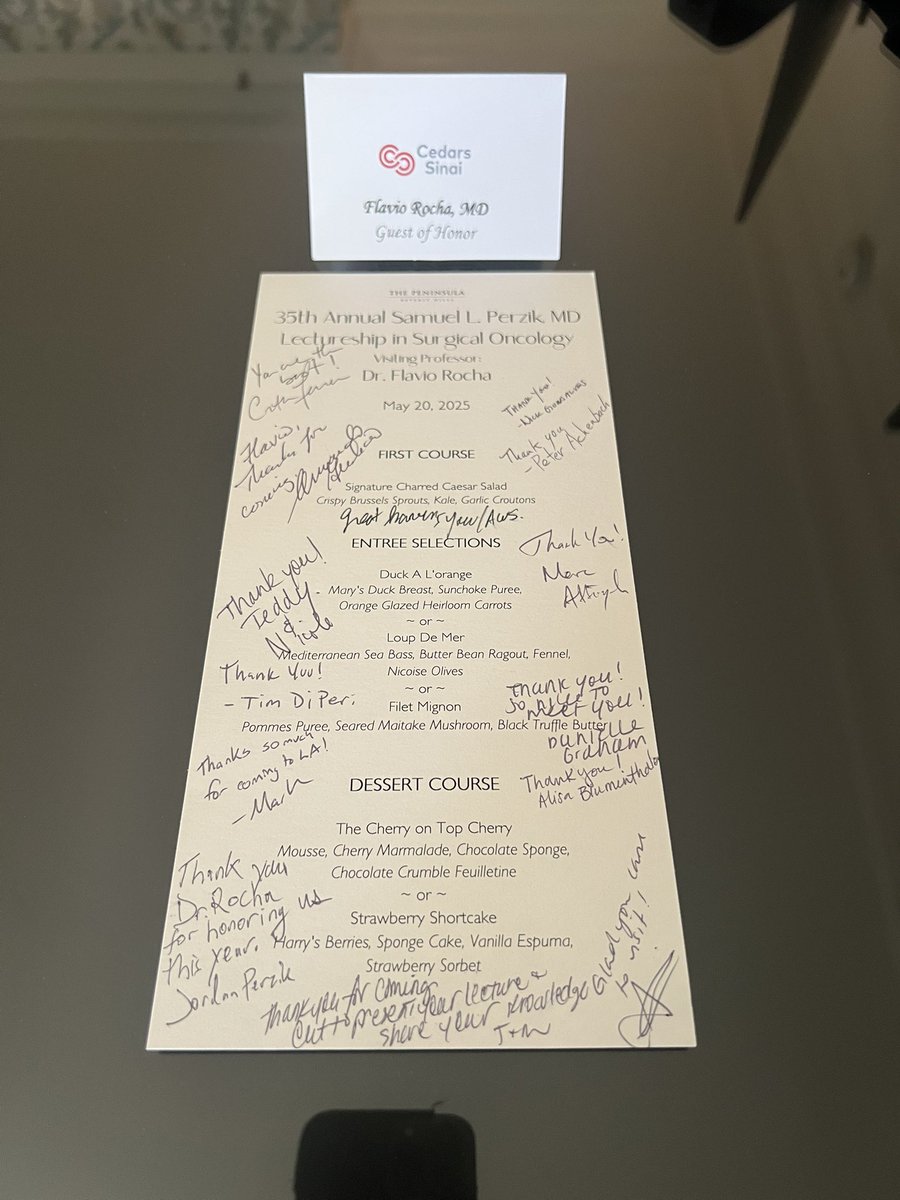 Cedars
Sinai
Flavio Rocha, MD
Guest of Honor
THE PENINSULA
BEVERLY HILLS
35th Annual Samuel L. Perzik, MD
Lectureship in Surgical Oncology
Visiting Professor:
Dr. Flavio Rocha
May 20, 2025
You are the
best!
Thank you!
Flavio,
thanks for
coming
Thank you
- Peter Ackenbach
FIRST COURSE
Signature Charred Caesar Salad
Crispy Brussels Sprouts, Kale, Garlic Croutons
Great having you/Aws.
ENTREE SELECTIONS
Thank You!
Marc
Thank you!
Teddy
&
Nicole
Duck A L'orange
Mary's Duck Breast, Sunchoke Puree,
Orange Glazed Heirloom Carrots
~ or ~
Loup De Mer
Mediterranean Sea Bass, Butter Bean Ragout, Fennel,
Nicoise Olives
~ or ~
Filet Mignon
Pommes Puree, Seared Maitake Mushroom, Black Truffle Butter
Thank You!
- Tim DiPeri
Thank you!
So nice to
meet you!
Danielle
Graham
Thanks so much
for coming to LA!
- Mark
Thank you!
Alisa Blumenthaler
DESSERT COURSE
The Cherry on Top Cherry
Mousse, Cherry Marmalade, Chocolate Sponge,
Chocolate Crumble Feuilletine
~ or ~
Strawberry Shortcake
Harry's Berries, Sponge Cake, Vanilla Espuma,
Strawberry Sorbet
Thank you
Dr. Rocha
for honoring us
this year.
Jordan Perzik
Thank you for coming
out to present your lecture &
share your knowledge
J + M
Glad you came
to visit!